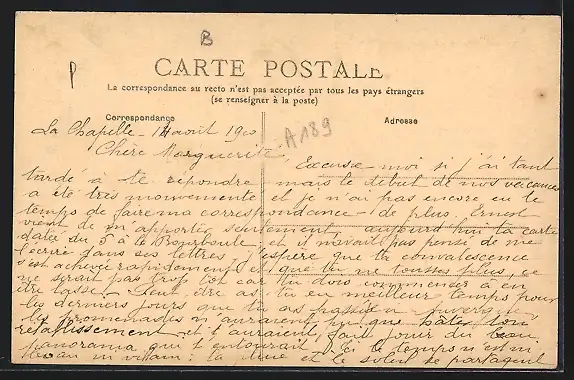 B
P
CARTE POSTALE
La correspondance au recto n'est pas acceptée par tous les pays étrangers
(se renseigner à la poste)
Correspondance
Adresse
A189
La Chapelle - 14 août 190
Chère Marguerite,
Excuse-moi si j'ai tant
tardé à te répondre mais le début de nos vacances
a été très mouvementé et je n'ai pas encore eu le
temps de faire ma correspondance - de plus, Ernest
vient de m'apporter seulement, aujourd'hui ta carte
datée du 5 à la Bourboule, et il n'avait pas pensé de me
l'écrire dans ses lettres, j'espère que ta convalescence
s'est achevée rapidement et que tu ne tousses plus, ce
ne serait pas trop tôt car tu dois commencer à en
être lasse. Peut-être as-tu eu meilleur temps pour
les derniers jours que tu as passés en Auvergne,
les promenades n'auraient pu que hâter ton
rétablissement et t'auraient fait jouir du beau
panorama qui t'entourait. Ici le temps n'est ni
beau ni vilain: la pluie et le soleil se partagent